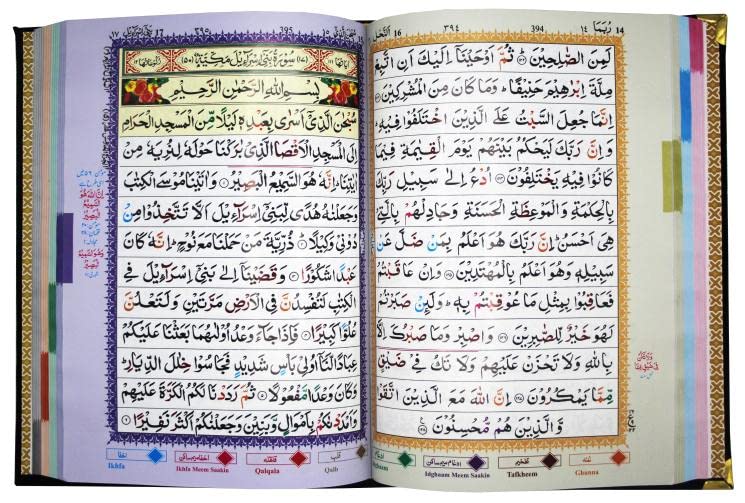 رُبَمَا ١٤ 14
394 ٣٩٤
اَلنَّحْل ١٦ 16
لَمِنَ الصّٰلِحِيْنَ ۝١٢٢ ثُمَّ اَوْحَيْنَاۤ اِلَيْكَ اَنِ اتَّبِعْ
مِلَّةَ اِبْرٰهِيْمَ حَنِيْفًا ؕ وَمَا كَانَ مِنَ الْمُشْرِكِيْنَ ۝١٢٣
اِنَّمَا جُعِلَ السَّبْتُ عَلَى الَّذِيْنَ اخْتَلَفُوْا فِيْهِ ؕ
وَاِنَّ رَبَّكَ لَيَحْكُمُ بَيْنَهُمْ يَوْمَ الْقِيٰمَةِ فِيْمَا
كَانُوْا فِيْهِ يَخْتَلِفُوْنَ ۝١٢٤ اُدْعُ اِلٰى سَبِيْلِ رَبِّكَ
بِالْحِكْمَةِ وَالْمَوْعِظَةِ الْحَسَنَةِ وَجَادِلْهُمْ بِالَّتِيْ
هِيَ اَحْسَنُ ؕ اِنَّ رَبَّكَ هُوَ اَعْلَمُ بِمَنْ ضَلَّ عَنْ
سَبِيْلِهٖ وَهُوَ اَعْلَمُ بِالْمُهْتَدِيْنَ ۝١٢٥ وَاِنْ عَاقَبْتُمْ
فَعَاقِبُوْا بِمِثْلِ مَا عُوْقِبْتُمْ بِهٖ ؕ وَلَئِنْ صَبَرْتُمْ
لَهُوَ خَيْرٌ لِّلصّٰبِرِيْنَ ۝١٢٦ وَاصْبِرْ وَمَا صَبْرُكَ اِلَّا
بِاللّٰهِ وَلَا تَحْزَنْ عَلَيْهِمْ وَلَا تَكُ فِيْ ضَيْقٍ
مِّمَّا يَمْكُرُوْنَ ۝١٢٧ اِنَّ اللّٰهَ مَعَ الَّذِيْنَ اتَّقَوْا
وَّالَّذِيْنَ هُمْ مُّحْسِنُوْنَ ۝١٢٨
غنه
Ghunna
تفخيم
Tafkheem
ادغام ميم ساكن
Idghaam Meem Saakin
ادغام
395 ٣٩٥
بنی اسرآءیل ١٧ 17
(١٧) سُوْرَةُ بَنِيْۤ اِسْرَآءِيْلَ مَكِّيَّةٌ (٥٠)
بِسْمِ اللّٰهِ الرَّحْمٰنِ الرَّحِيْمِ
سُبْحٰنَ الَّذِيْۤ اَسْرٰى بِعَبْدِهٖ لَيْلًا مِّنَ الْمَسْجِدِ الْحَرَامِ
اِلَى الْمَسْجِدِ الْاَقْصَا الَّذِيْ بٰرَكْنَا حَوْلَهٗ لِنُرِيَهٗ مِنْ
اٰيٰتِنَا ؕ اِنَّهٗ هُوَ السَّمِيْعُ الْبَصِيْرُ ۝١ وَاٰتَيْنَا مُوْسَى الْكِتٰبَ
وَجَعَلْنٰهُ هُدًى لِّبَنِيْۤ اِسْرَآءِيْلَ اَلَّا تَتَّخِذُوْا مِنْ
دُوْنِيْ وَكِيْلًا ۝٢ ذُرِّيَّةَ مَنْ حَمَلْنَا مَعَ نُوْحٍ ؕ اِنَّهٗ كَانَ
عَبْدًا شَكُوْرًا ۝٣ وَقَضَيْنَاۤ اِلٰى بَنِيْۤ اِسْرَآءِيْلَ فِي
الْكِتٰبِ لَتُفْسِدُنَّ فِي الْاَرْضِ مَرَّتَيْنِ وَلَتَعْلُنَّ
عُلُوًّا كَبِيْرًا ۝٤ فَاِذَا جَآءَ وَعْدُ اُوْلٰىهُمَا بَعَثْنَا عَلَيْكُمْ
عِبَادًا لَّنَاۤ اُولِيْ بَاْسٍ شَدِيْدٍ فَجَاسُوْا خِلٰلَ الدِّيَارِ ؕ
وَكَانَ وَعْدًا مَّفْعُوْلًا ۝٥ ثُمَّ رَدَدْنَا لَكُمُ الْكَرَّةَ عَلَيْهِمْ
وَاَمْدَدْنٰكُمْ بِاَمْوَالٍ وَّبَنِيْنَ وَجَعَلْنٰكُمْ اَكْثَرَ نَفِيْرًا ۝٦
قلب
Qalb
قلقله
Qalqala
اخفا ميم ساكن
Ikhfa Meem Saakin
اخفا
Ikhfa